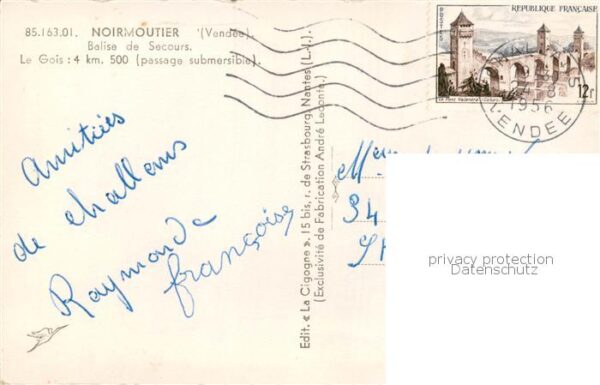 85.163.01. NOIRMOUTIER (Vendée).
Balise de Secours.
Le Gois : 4 km. 500 (passage submersible).
POSTES
RÉPUBLIQUE FRANÇAISE
12f
1956
VENDEE
Amitiés
de challens
Raymonde
françoise
Edit. « La Cigogne », 15 bis, r. de Strasbourg, Nantes (L.-I.).
(Exclusivité de Fabrication André Leconte.)
34
privacy protection
Datenschutz